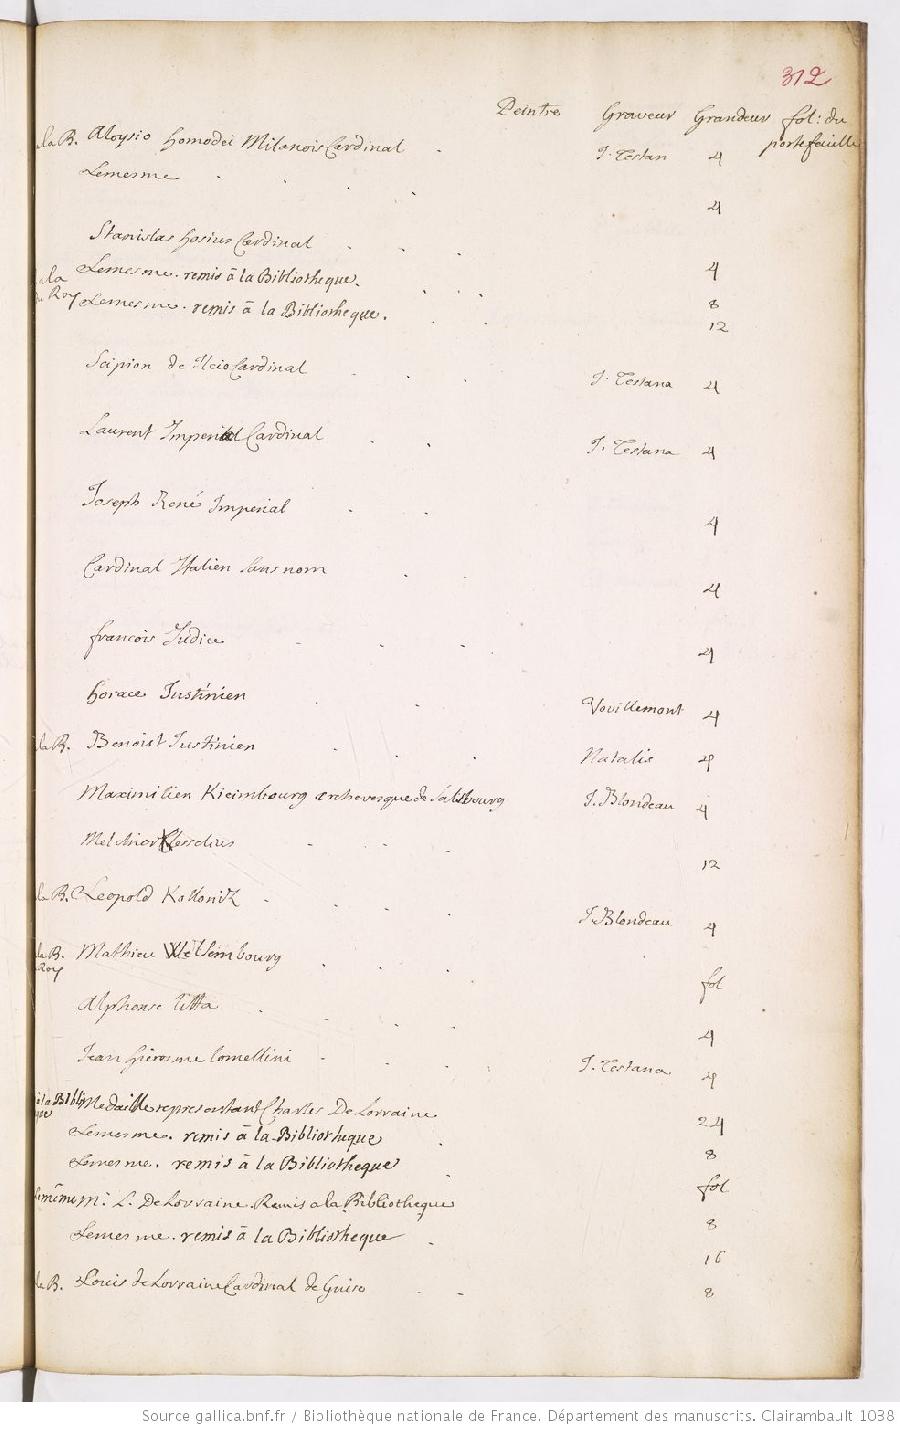 312
Peintre Graveur Grandeur fol: du
portefeuille
la B. Aloysio homodei Milanois Cardinal J. Testan 4
Lemesme 4
Stanislas hosius Cardinal 4
a la Lemesme. remis à la Bibliotheque. 8
du Roy Lemesme. remis à la Bibliotheque. 12
Scipion de Cardinal J. Testana 4
Laurent Imperial Cardinal J. Testana 4
Joseph René Imperial 4
Cardinal Italien sans nom 4
francois Judice 4
horace Justinien Vouillemont 4
la B. Benoist Justinien Natalis 4
Maximilien archevesque de Saltzbourg J. Blondeau 4
Melchior 12
la B. Leopold Kollonitz J. Blondeau 4
la B. Mathieu fol
Roy
Alphonse Litta 4
Jean hierosme Lomellini J. Testana 4
a la Bibliothe Medaille representant Charles De Lorraine 24
que
Lemesme. remis à la Bibliotheque 8
Lemesme. remis à la Bibliotheque fol
De Lorraine Remis a la Bibliotheque 8
Lemesme. remis à la Bibliotheque 16
la B. Louis de Lorraine Cardinal de Guise 8
Source gallica.bnf.fr / Bibliothèque nationale de France. Département des manuscrits. Clairambault 1038